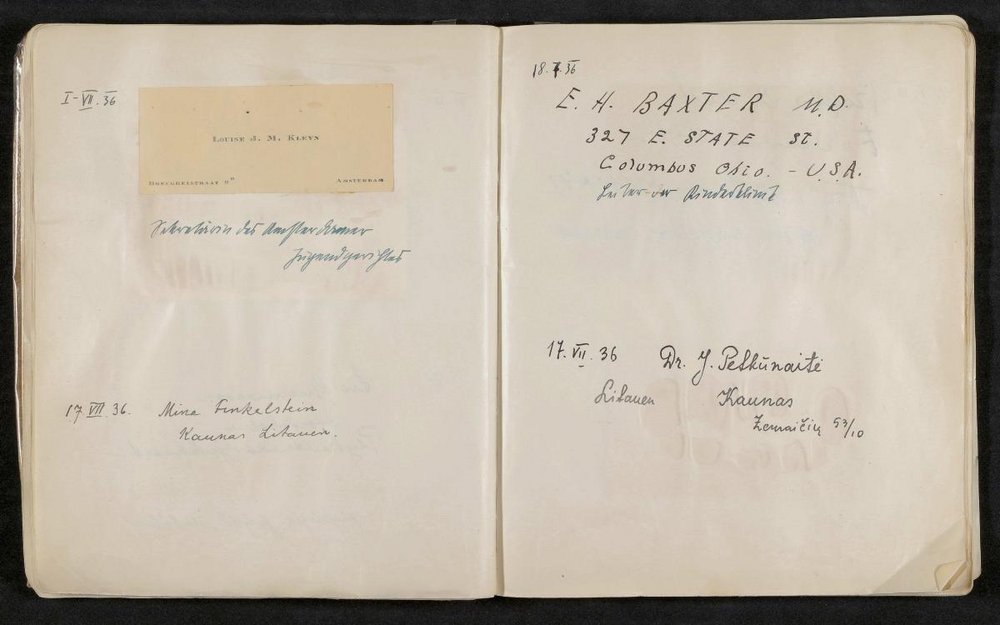 I-VII.36
LOUISE J. M. KLEYN
AMSTERDAM
Sekretärin des Amsterdamer
Jugendgerichtes
17 VII 36. Mina Finkelstein
Kaunas Litauen.
18. 7. 36
E. H. BAXTER M.D.
327 E. STATE ST.
Columbus Ohio. - U.S.A.
Leiter der Kinderklinik
17. VII. 36 Dr. J. Petkūnaitė
Litauen Kaunas
Žemaičių 53/10